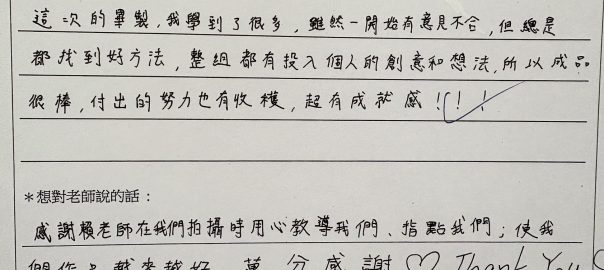 這次的畢製，我學到了很多，雖然一開始有意見不合，但總是
都找到好方法，整組都有投入個人的創意和想法，所以成品
很棒，付出的努力也有收穫，超有成就感！！！
＊想對老師說的話：
感謝賴老師在我們拍攝時用心教導我們、指點我們；使我
們作品越來越好，萬分感謝♡ Thank You